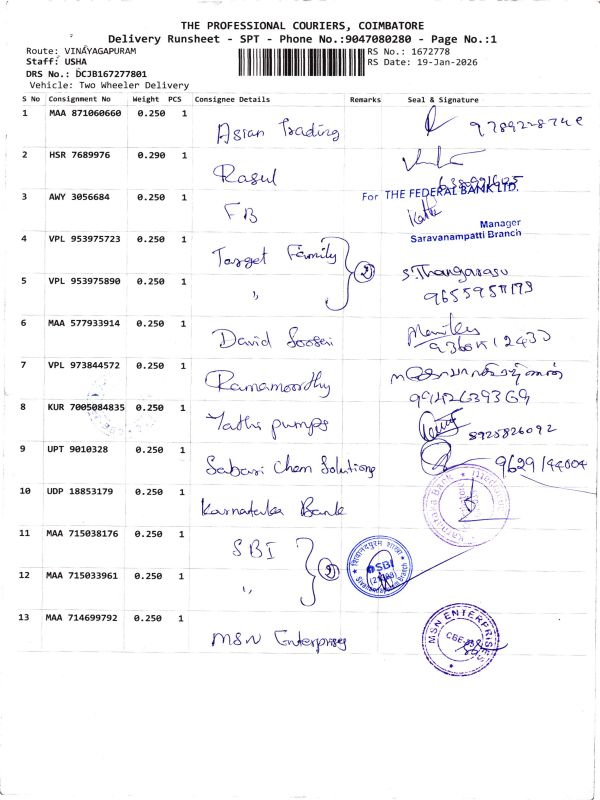 THE PROFESSIONAL COURIERS, COIMBATORE
Delivery Runsheet - SPT - Phone No.:9047080280 - Page No.:1
Route: VINAYAGAPURAM
RS No.: 1672778
Staff: USHA
RS Date: 19-Jan-2026
DRS No.: DCJB167277801
Vehicle: Two Wheeler Delivery
S No Consignment No Weight PCS Consignee Details Remarks Seal & Signature
1 MAA 871060660 0.250 1 Asian Trading
2 HSR 7689976 0.290 1 Rasul
3 AWY 3056684 0.250 1 FB
For THE FEDERAL BANK LTD.
Manager
Saravanampatti Branch
4 VPL 953975723 0.250 1 Target Family 2
5 VPL 953975890 0.250 1 ,, S. Thangarasu
96559581179
6 MAA 577933914 0.250 1 David
7 VPL 973844572 0.250 1 Ramamoorthy
8 KUR 7005084835 0.250 1 Yaths pumps 8925826092
9 UPT 9010328 0.250 1 Sabari Chem Solutions 9629144004
10 UDP 18853179 0.250 1 Karnataka Bank
Karnataka Bank
11 MAA 715038176 0.250 1 SBI 2
SBI
12 MAA 715033961 0.250 1 ,,
13 MAA 714699792 0.250 1 MSN Enterprises
MSN ENTERPRISES